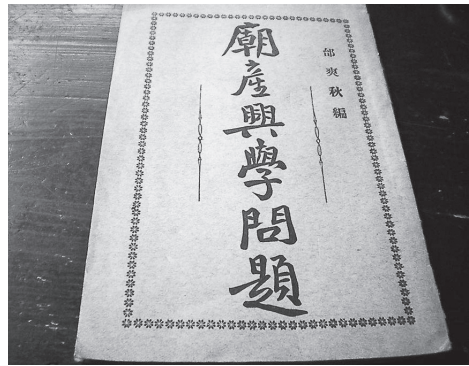 邰爽秋編
廟產興學問題